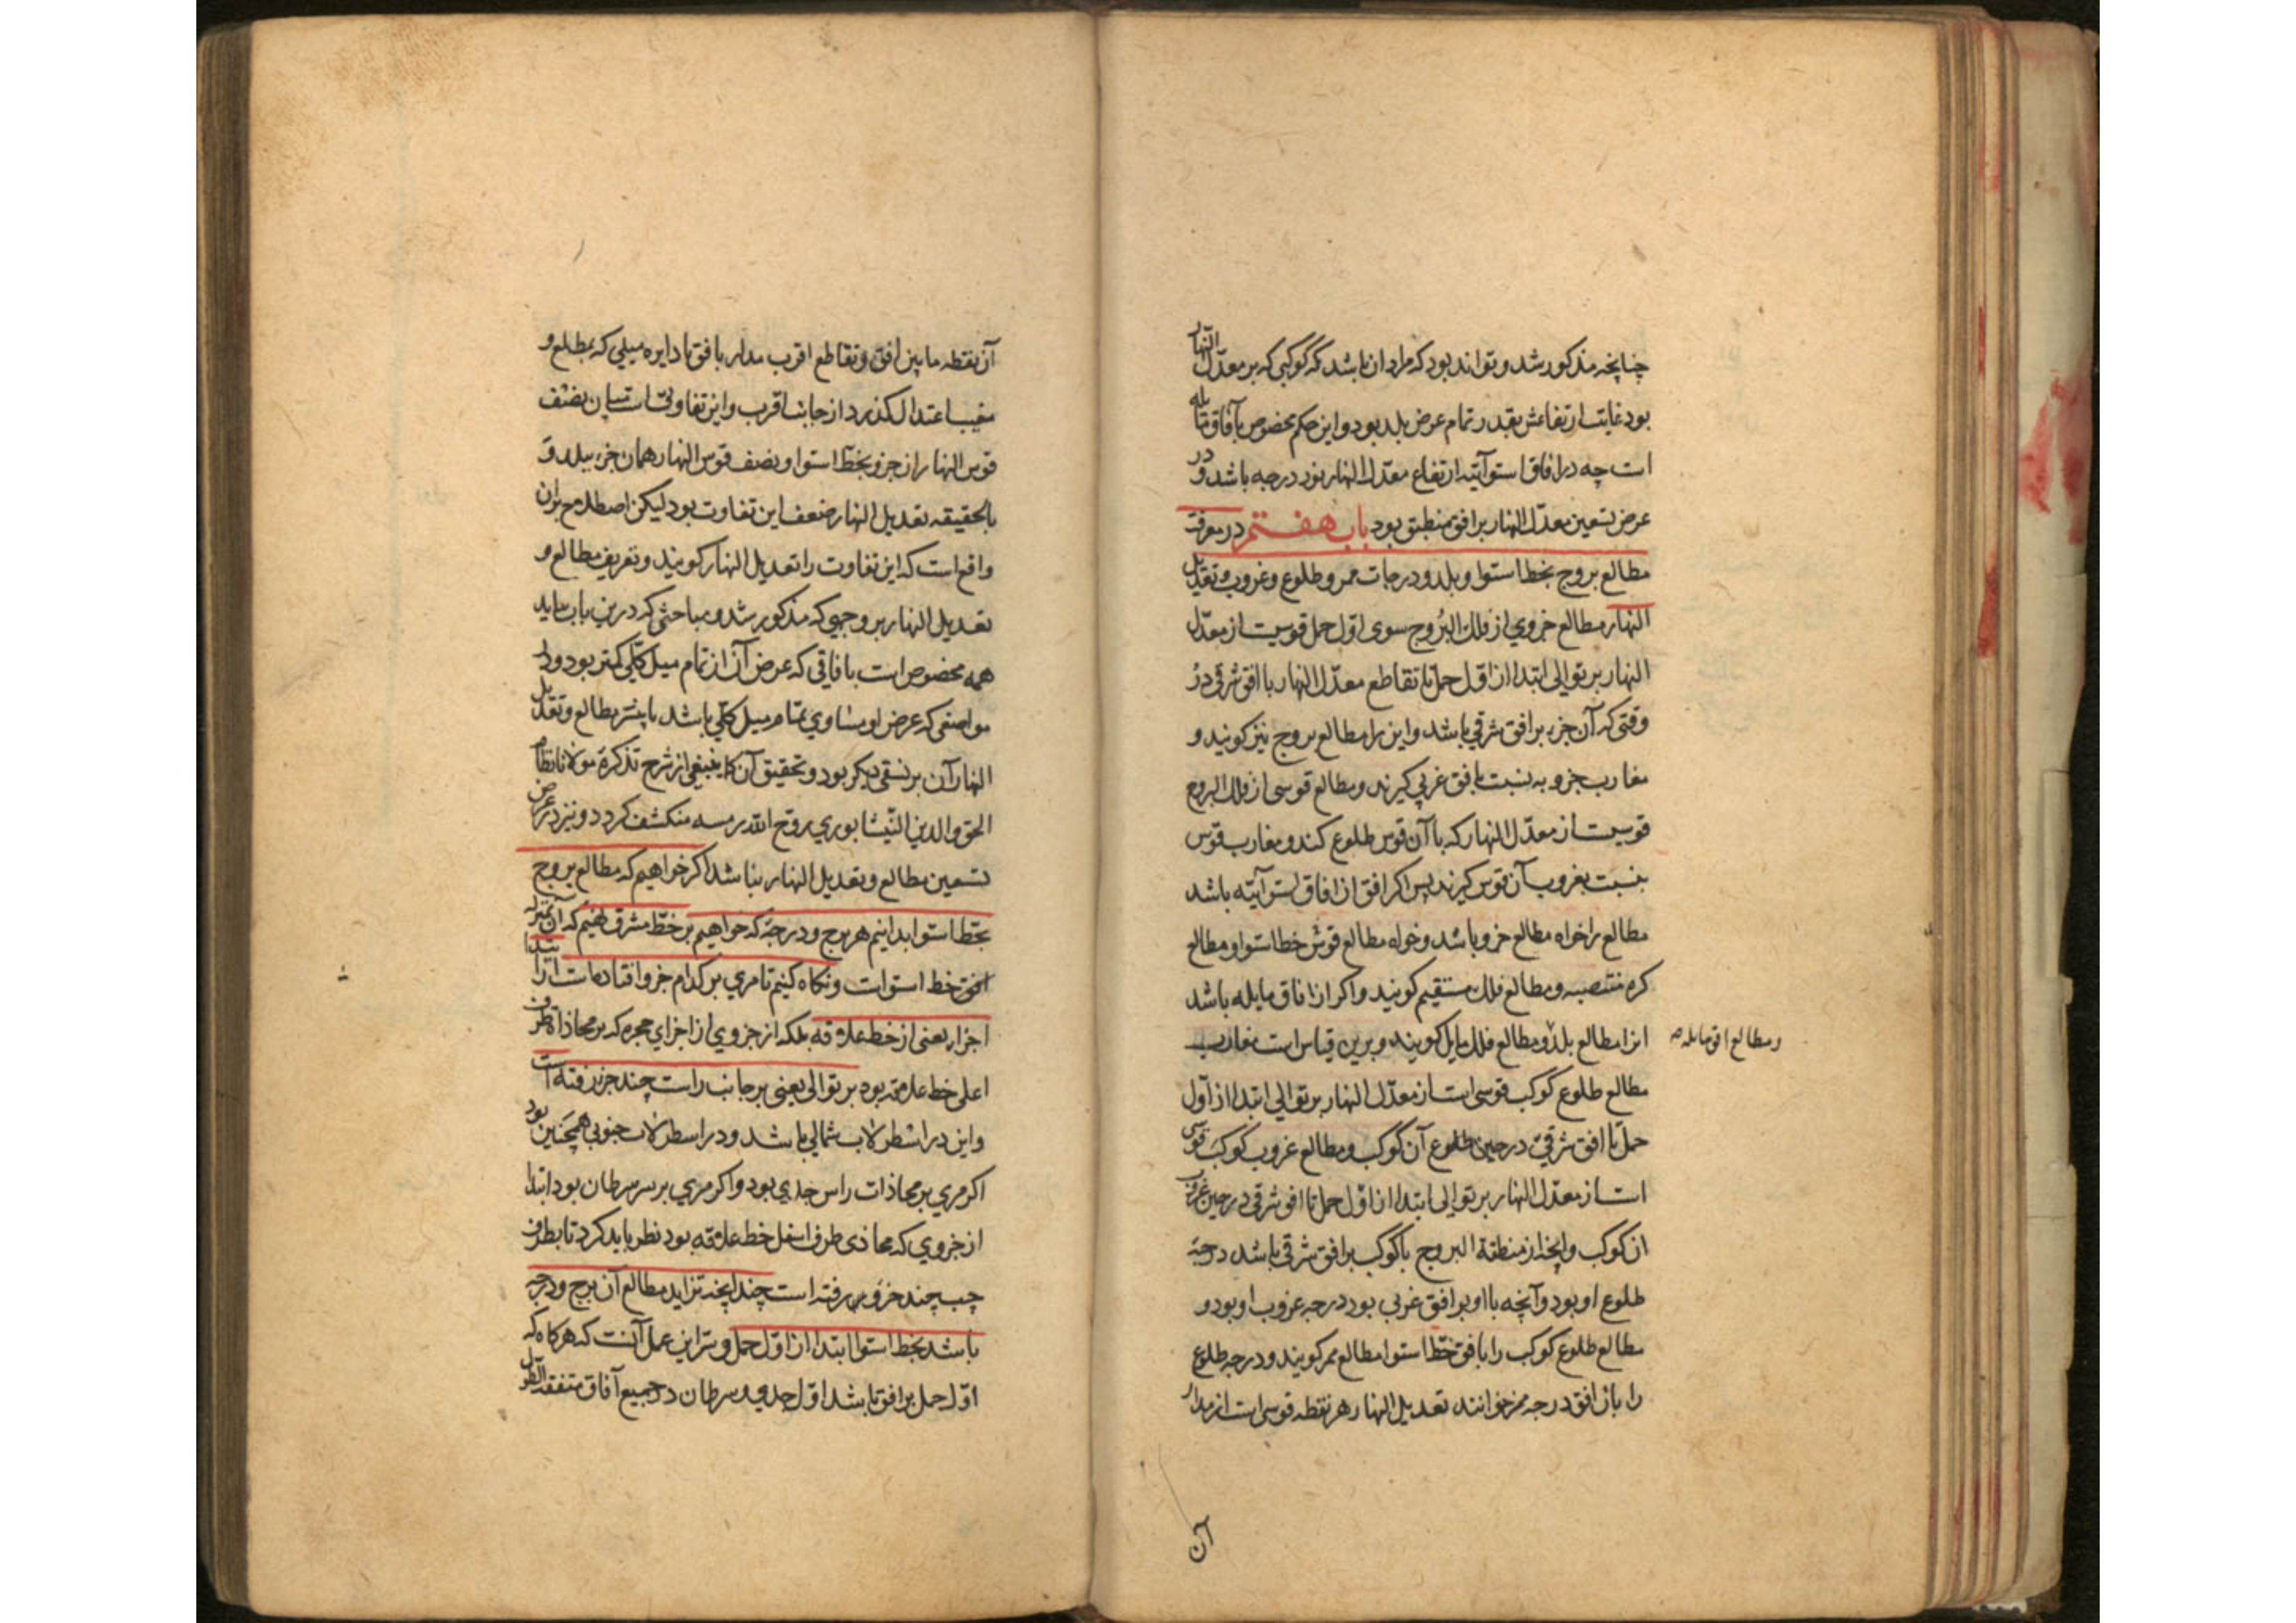 چنانچه مذکور شد و تواند بود که مراد ان باشد که کوکبی که بر معدّل النهار
بود غایت ارتفاعش بقدر تمام عرض بلد بود و این حکم مخصوص بآفاق مایله
است چه در افاق استوائیه ارتفاع معدّل النهار نود درجه باشد و در
عرض تسعین معدّل النهار بر افق منطبق بود باب هفتم در معرفت
مطالع بروج بخط استوا و بلد و درجات ممر و طلوع و غروب و تعدیل
النهار مطالع جزوی از فلک البروج سوی اوّل حمل قوسیست از معدّل
النهار بر توالی ابتدا از اوّل حمل تا تقاطع معدّل النهار با افق شرقی در
وقتی که آن جزء بر افق شرقی باشد و این را مطالع بروج نیز کویند و
مغارب جزو به نسبت بافق غربی کیرند و مطالع قوسی از فلک البروج
قوسیست از معدّل النهار که با آن قوس طلوع کند و مغارب قوس
بنسبت بغروب آن قوس کیرند پس اکر افق از افاق استوآئیه باشد
مطالع را خواه مطالع جزو باشد و خواه مطالع قوس خط استوا و مطالع
کره منتصبه و مطالع فلک مستقیم کویند و اکر از افاق مایله باشد
انرا مطالع بلد و مطالع فلک مایل کویند و برین قیاس است مغارب
و مطالع افق مایله صح
مطالع طلوع کوکب قوسی است از معدّل النهار بر توالی ابتدا از اوّل
حمل تا افق شرقی در حین طلوع آن کوکب و مطالع غروب کوکب قوسی
است از معدّل النهار بر توالی ابتدا از اوّل حمل تا افق شرقی در حین غروب
ان کوکب و آنچه از منطقة البروج با کوکب بر افق شرقی باشد درجهٔ
طلوع او بود و آنچه با او بر افق غربی بود درجه غروب او بود و
مطالع طلوع کوکب را بافق خط استوا مطالع ممر کویند و درجه طلوع
را بان افق درجه ممر خوانند تعدیل النهار هر نقطه قوسی است از مدار
آن
آن نقطه ما بین افق و تقاطع اقرب مدار با افق با دایره میلی که بمطلع و
مغیب اعتدال کذرد از جانب اقرب و این تفاوتی است میان نصف
قوس النهار از جزو بخط استوا و نصف قوس النهار همان جزء ببلد و
بالحقیقه تعدیل النهار ضعف این تفاوت بود لیکن اصطلاح بران
واقع است که این تفاوت را تعدیل النهار کویند و تعریف مطالع و
تعدیل النهار بر وجهی که مذکور شد و مباحثی که درین باب بیاید
همه مخصوص است بافاقی که عرض آن از تمام میل کلّی کمتر بود و در
مواضعی که عرض او مساوی تمام میل کلّی باشد یا بیشتر مطالع و تعدیل
النهار آن بر نسقی دیکر بود و تحقیق آن کما ینبغی از شرح تذکرهٔ مولانا نظام
الحق و الدین النیشابوری روّح الله رمسه منکشف کردد و نیز در عرض
تسعین مطالع و تعدیل النهار نباشد اکر خواهیم که مطالع بروج
بخط استوا بدانیم هر برج و درجهٔ که خواهیم بر خط مشرق نهیم که آن بمنزله
افق خط استوا است و نکاه کنیم تا مری بر کدام جزو افتاده است از ابتدا
اجزا یعنی از خط علاقه بلکه از جزوی از اجزای حجره که بر محاذاة طرف
اعلی خط علاقه بود بر توالی یعنی بر جانب راست چند جزء رفته است
و این در اسطرلاب شمالی باشد و در اسطرلاب جنوبی همچنین بود
اکر مری بر محاذات راس جدی بود و اکر مری بر سر سرطان بود ابتدا
از جزوی که محاذی طرف اسفل خط علاقه بود نظر باید کرد تا بطرف
چپ چند جزو بر رفته است چند انچه برآید مطالع آن برج و درجه
باشد بخط استوا ابتدا از اوّل حمل و سرّ این عمل آنست که هر کاه که
اوّل حمل بر افق باشد اوّل جدی و سرطان در جمیع آفاق متفقه الطول